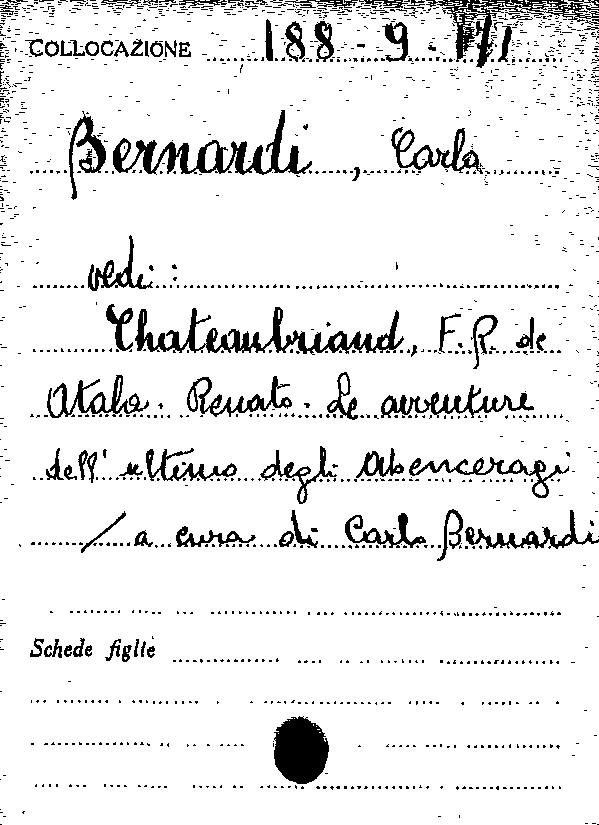 COLLOCAZIONE 188-9-171
Bernardi, Carlo
vedi:
Chateaubriand, F.R. de
Atala. Renato. Le avventure
dell' ultimo degli Abenceragi
/ a cura di Carlo Bernardi
Schede figlie